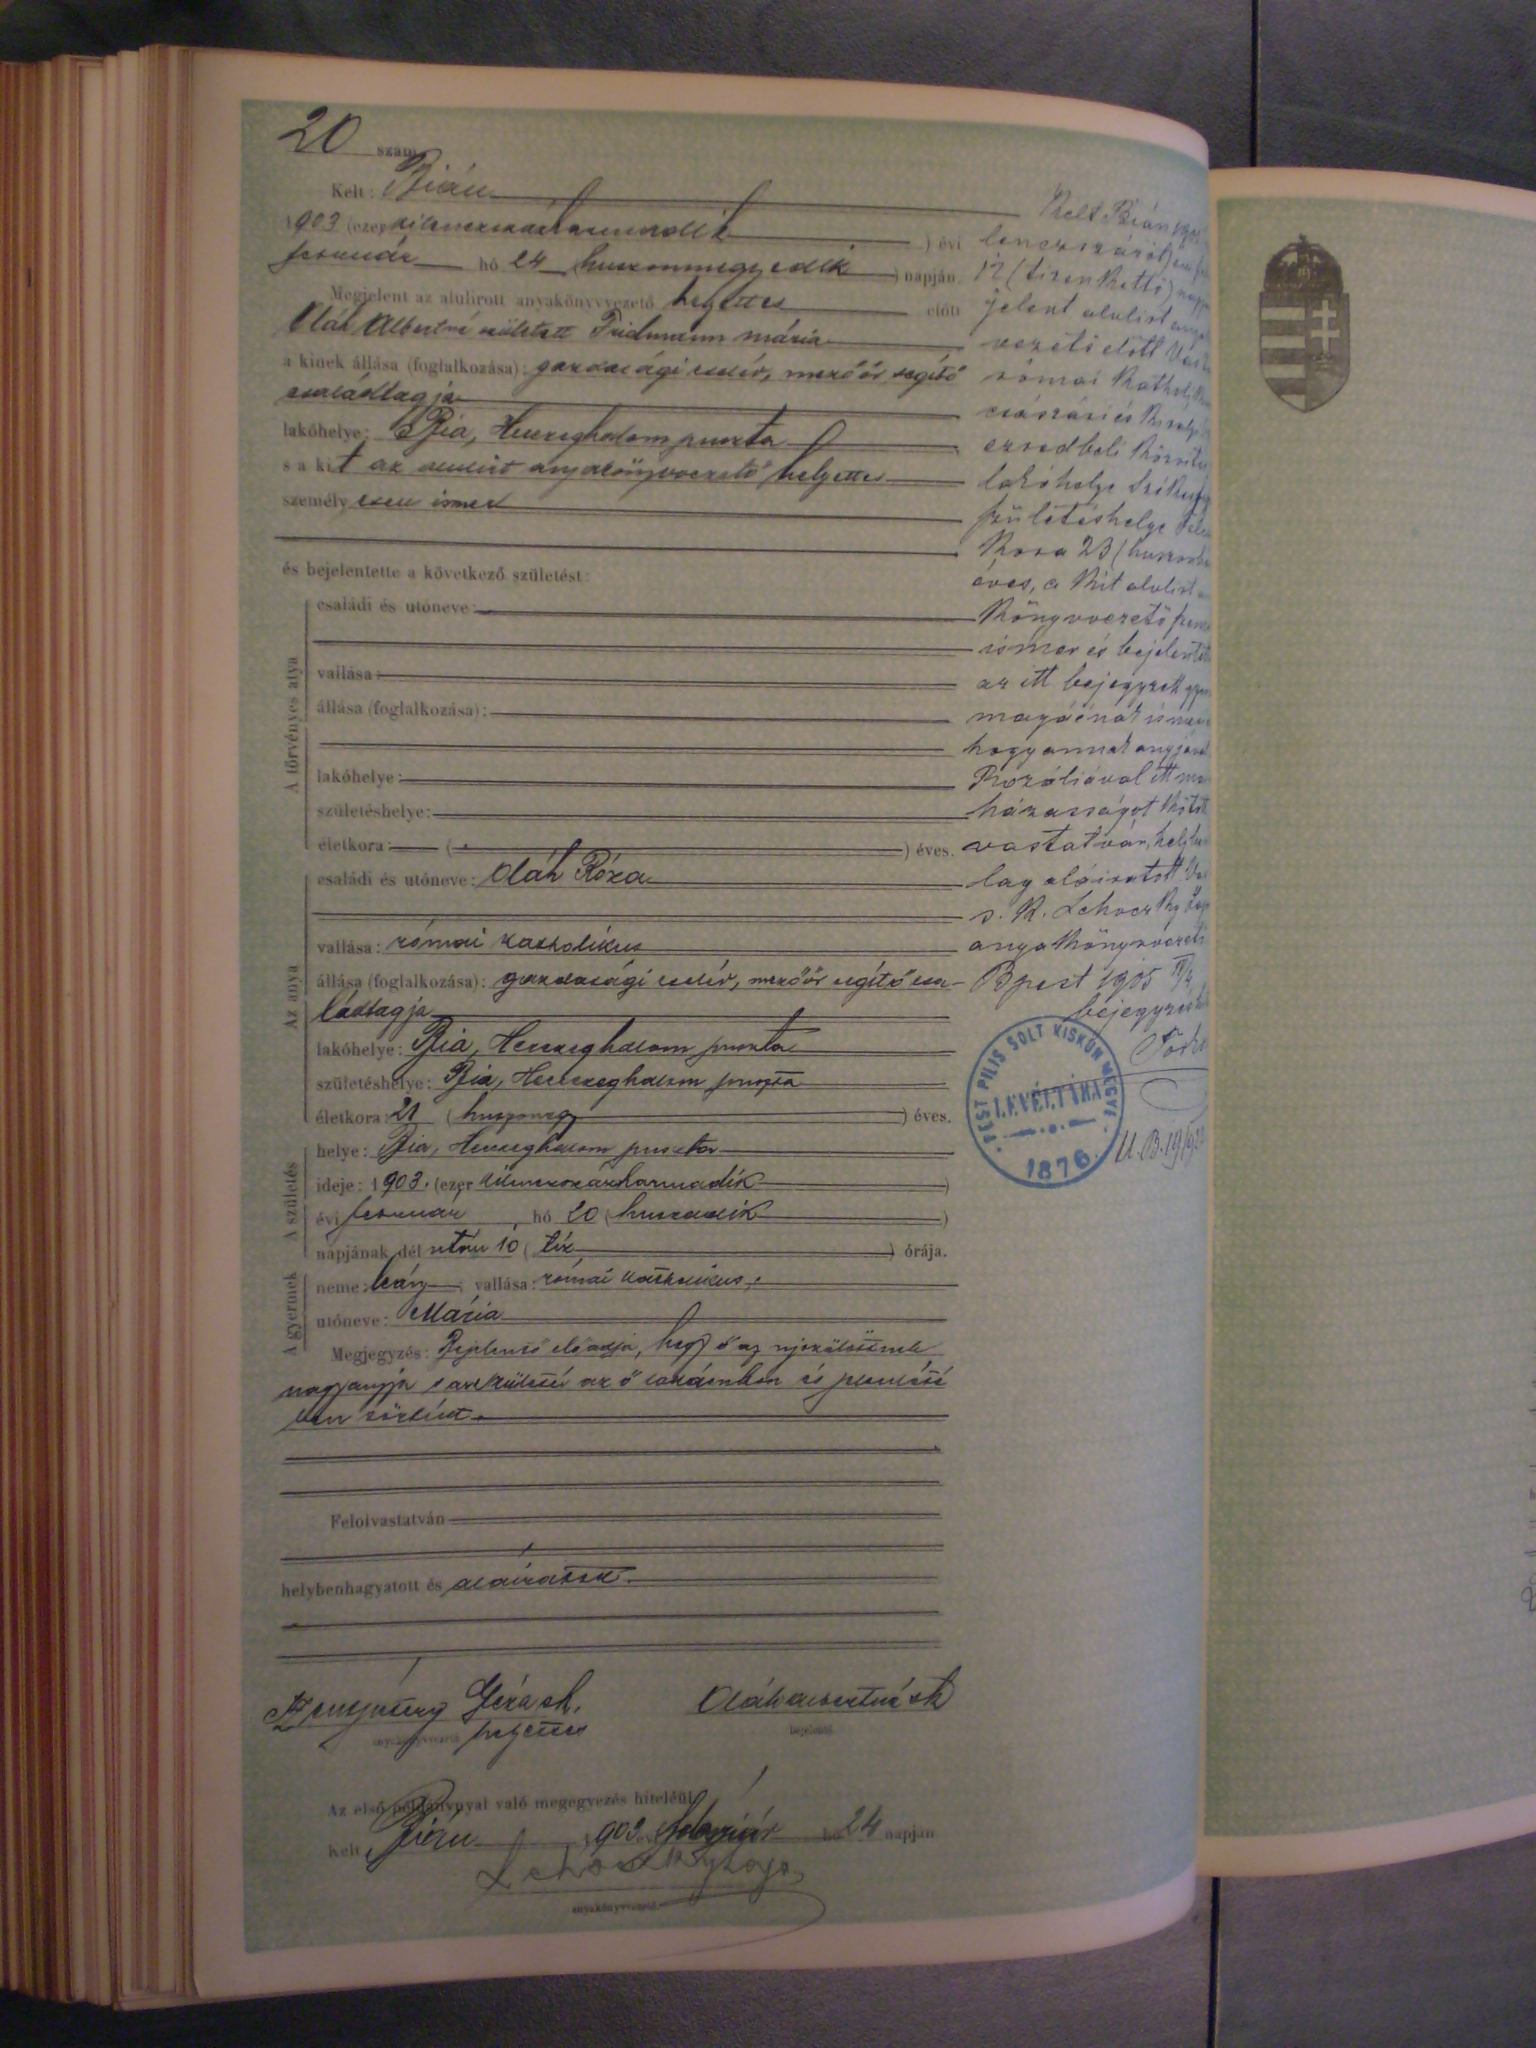 20 szám
Kelt: Bián
1903 (ezer kilenczszázharmadik) évi
február hó 24 huszonnegyedik) napján.
Megjelent az alulirott anyakönyvvezető helyettes előtt
Oláh Albertné született Fridmann mária
a kinek állása (foglalkozása): gazdasági cseléd, mezőőr segítő
családtagja
lakóhelye: Bia, Herczeghalom puszta
s a kit az alulirt anyakönyvvezető helyettes
személyesen ismer
és bejelentette a következő születést:
A törvényes atya
családi és utóneve:
vallása:
állása (foglalkozása):
lakóhelye:
születéshelye:
életkora: ( ) éves.
Az anya
családi és utóneve: Oláh Róza
vallása: római katholikus
állása (foglalkozása): gazdasági cseléd, mezőőr segítő csa-
ládtagja
lakóhelye: Bia, Herczeghalom puszta
születéshelye: Bia, Herczeghalom puszta
életkora: 21 (huszonegy) éves.
A születés
helye: Bia, Herczeghalom puszta
ideje: 1903. (ezer kilenczszázharmadik)
évi február hó 20 (huszadik)
napjának dél után 10 (tíz) órája.
A gyermek
neme: leány; vallása: római katholikus;
utóneve: Mária
Megjegyzés: Bejelentő előadja, hogy ő az ujszülöttnek
nagyanyja s a születés az ő lakásukban és jelenlété
ben történt.
Felolvastatván
helybenhagyatott és aláíratott.
Géza sk. Oláh Albertné sk
anyakönyvvezető helyettes bejelentő
Az első példánnyal való megegyezés hiteléül
Kelt Bián 1903 évi február hó 24 napján
Lehoczky Lajos
anyakönyvvezető
Kelt Bián
lenczszázöt)
12 (tizenkettő)
jelent alulirt
vezető előtt
római
császári és
ezredbeli
lakóhelye
születéshelye
23
éves, a kit alulirt
könyvvezető
ismer és
az itt bejegyzett
magáénak
hogy annak
Rozáliával itt
házasságot
vastatván,
lag aláiratott
s. k. Lehoczky
anyakönyvvezető
Bpest 1905
PEST PILIS SOLT KISKUN MEGYE
LEVÉLTÁRA
1876